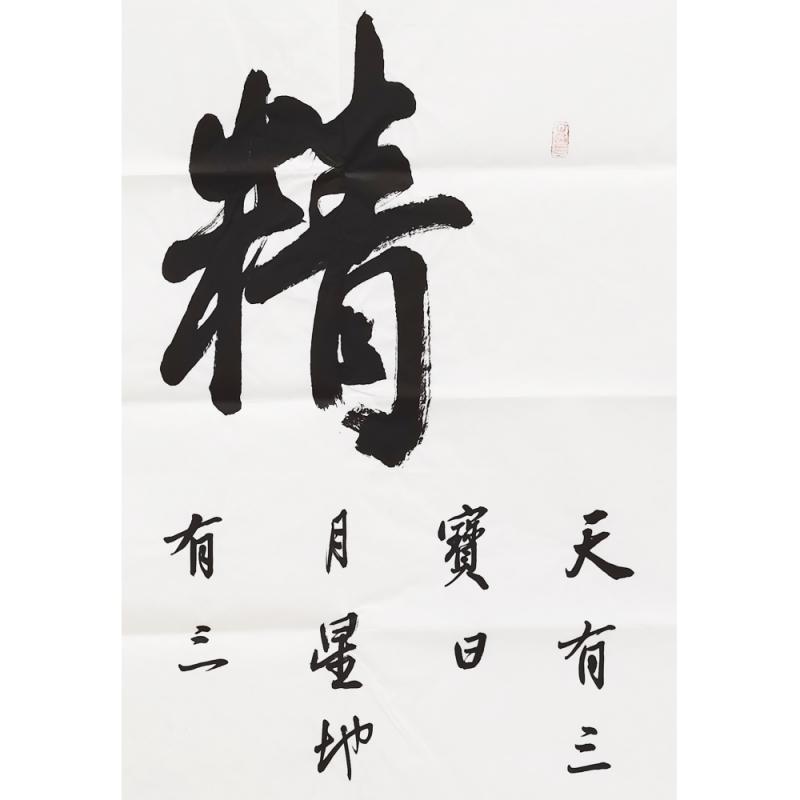 精
天有三
寶日
月星地
有三